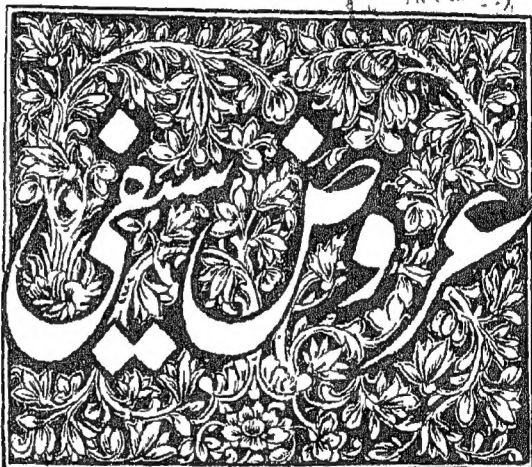 عروض سیفی